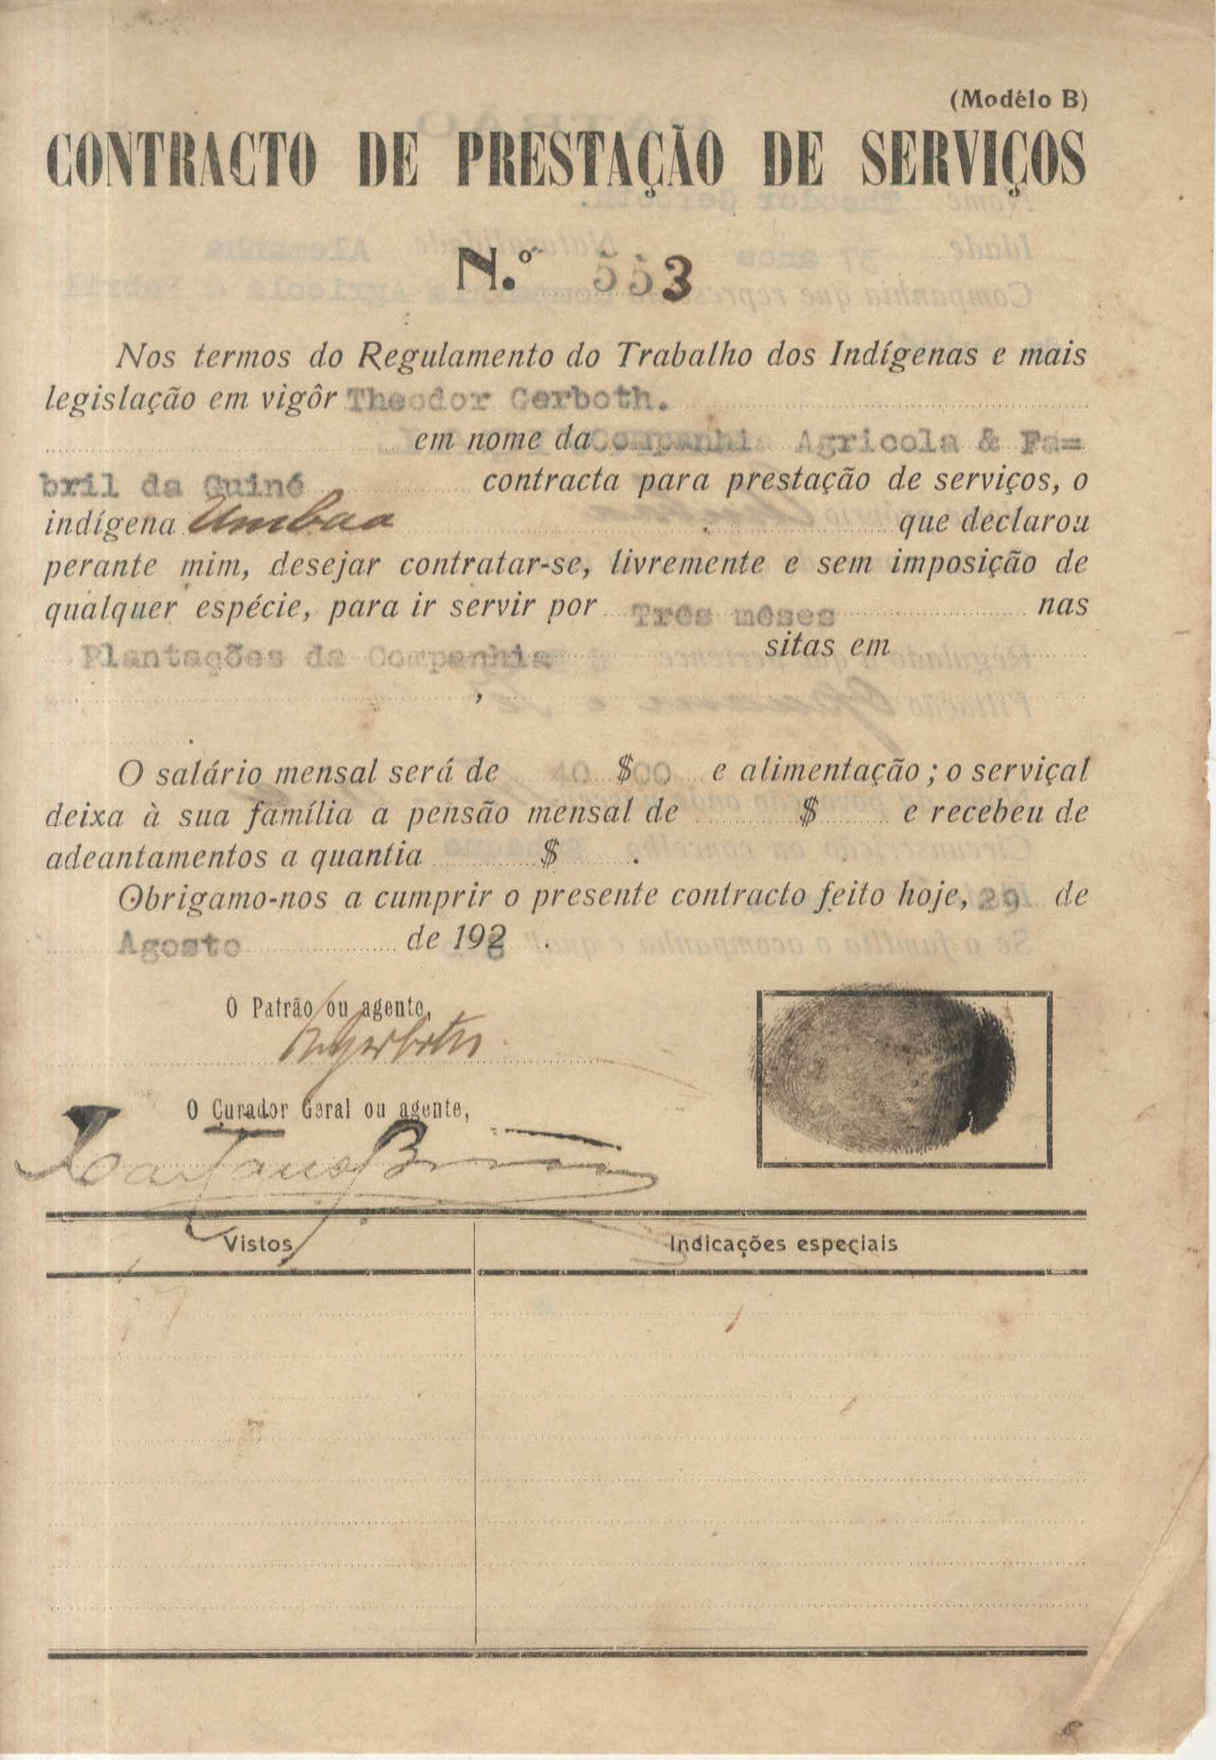 (Modélo B)
CONTRACTO DE PRESTAÇÃO DE SERVIÇOS
N.º 553
Nos termos do Regulamento do Trabalho dos Indígenas e mais
legislação em vigôr Theodor Gerboth.
em nome da Companhia Agricola & Fa-
bril da Guiné contracta para prestação de serviços, o
indígena Umbaa que declarou
perante mim, desejar contratar-se, livremente e sem imposição de
qualquer espécie, para ir servir por Trés mêses nas
Plantações da Companhia sitas em
O salário mensal será de 40 $00 e alimentação; o serviçal
deixa à sua família a pensão mensal de $ e recebeu de
adeantamentos a quantia $ .
Obrigamo-nos a cumprir o presente contracto feito hoje, 29 de
Agosto de 192 8 .
O Patrão ou agente,
O Curador Geral ou agente,
Vistos Indicações especiais